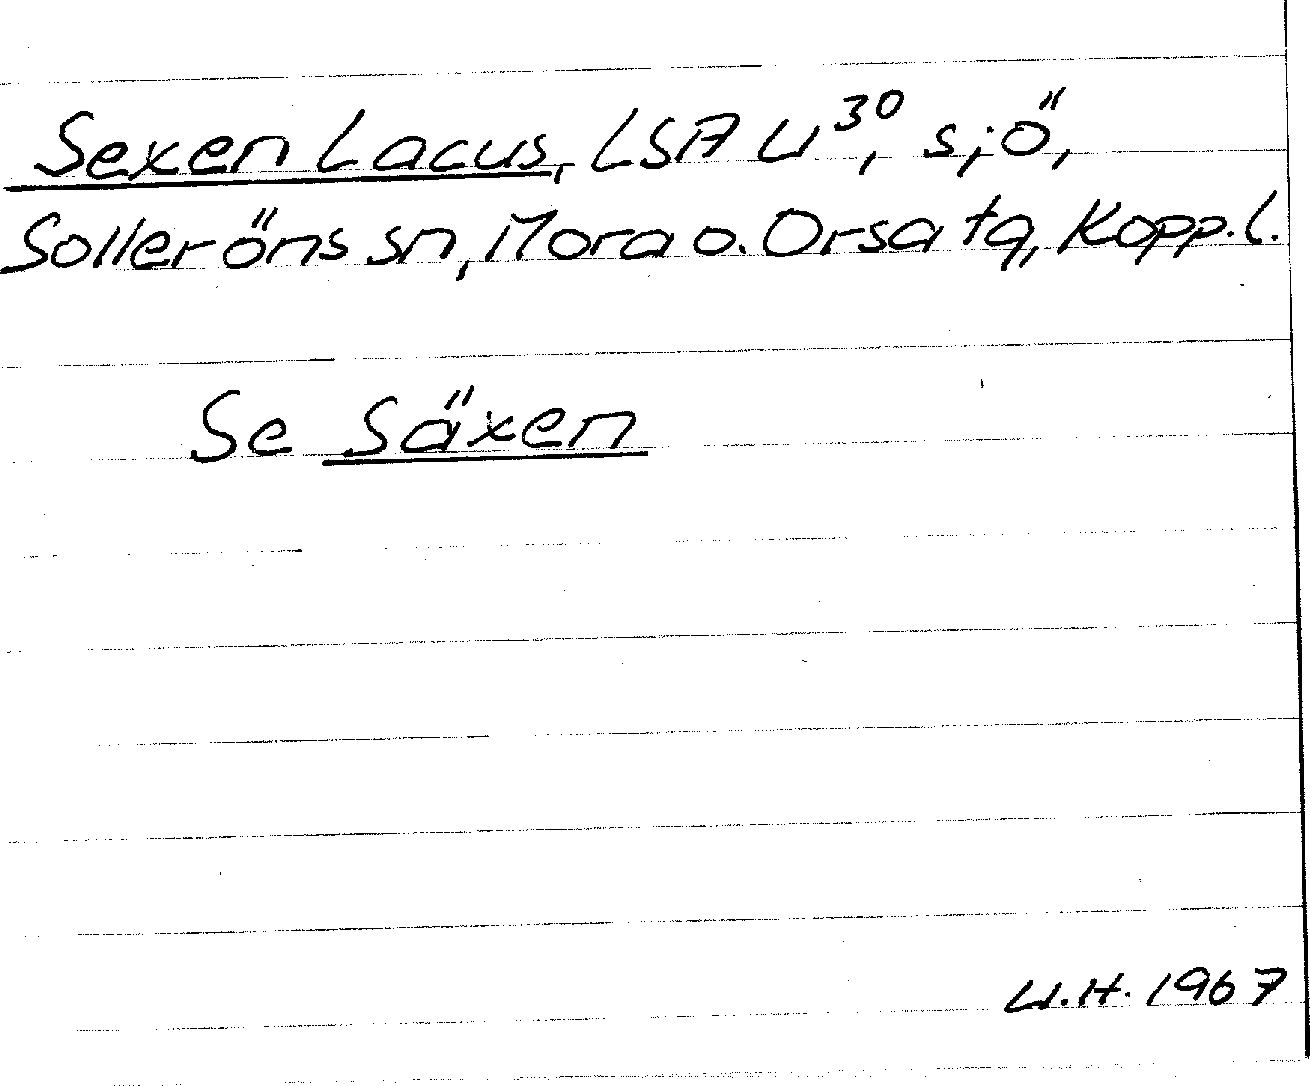 Sexen Lacus, LSA U³⁰, sjö,
Solleröns sn, Mora o. Orsa tg, Kopp. l.
Se Säxen
U.H. 1967